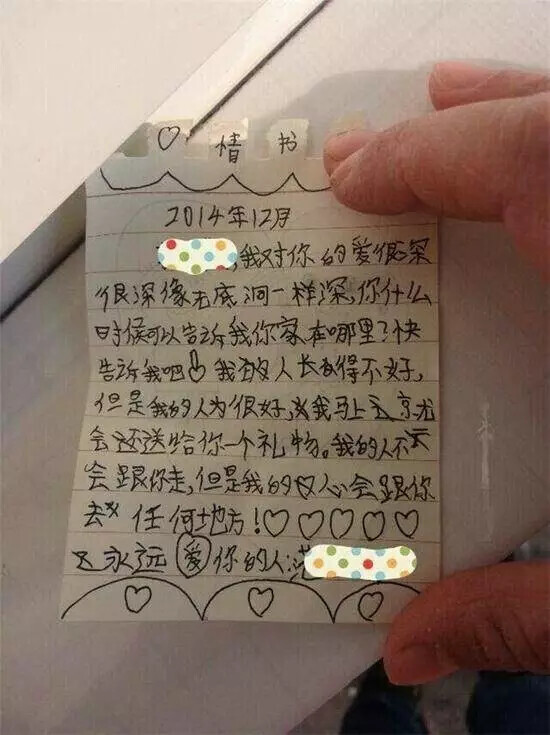 ♡ 情 书
2014年12月
,我对你的爱很深
很深像无底洞一样深,你什么
时候可以告诉我你家在哪里?快
告诉我吧 我的人长得不好,
但是我的人为很好,我马上
会还送给你一个礼物。我的人不
会跟你走,但是我的心会跟你
去 任何地方!♡♡♡♡♡
永远爱你的人:
♡ ♡ ♡